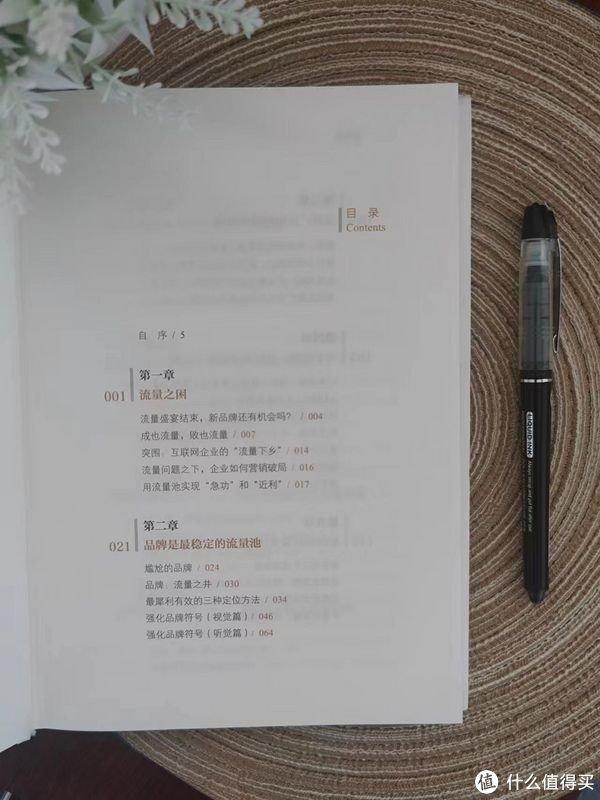 目 录
Contents
自 序 / 5
第一章
001 流量之困
流量盛宴结束，新品牌还有机会吗？ / 004
成也流量，败也流量 / 007
突围：互联网企业的“流量下乡” / 014
流量问题之下，企业如何营销破局 / 016
用流量池实现“急功”和“近利” / 017
第二章
021 品牌是最稳定的流量池
尴尬的品牌 / 024
品牌：流量之井 / 030
最犀利有效的三种定位方法 / 034
强化品牌符号（视觉篇） / 046
强化品牌符号（听觉篇） / 064
LIQUID INK
值 什么值得买